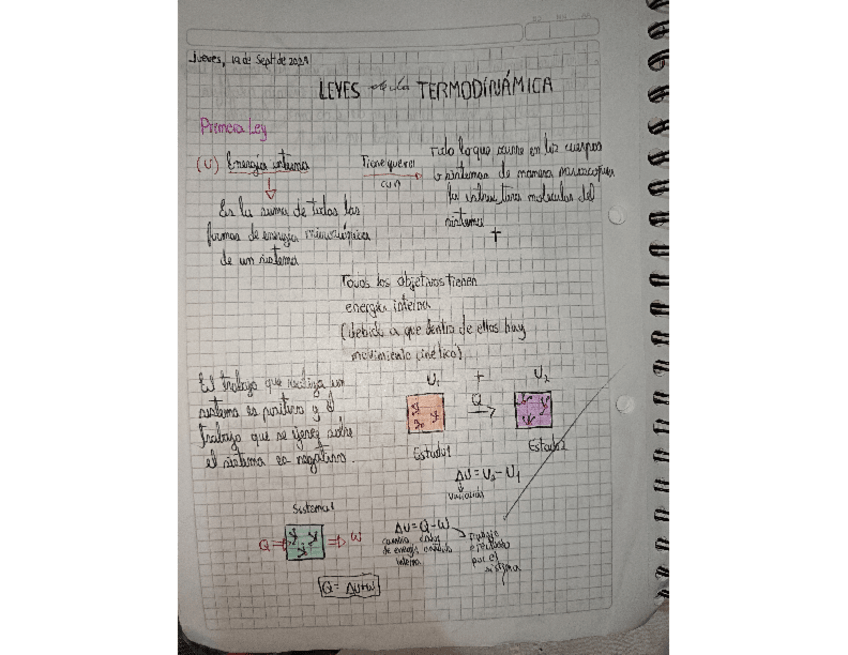 Jueves, 12 de Sept de 2024
LEYES de la TERMODINÁMICA
Primera Ley
(U) Energía interna
Es la suma de todas las
formas de energía microscópica
de un sistema
Tiene que ver
con
Todo lo que ocurre en los cuerpos
o sistemas de manera
molecular del
sistema
Todos los objetivos tienen
energía interna
(debido a que dentro de ellos hay
movimiento cinético)
El trabajo que realiza un
sistema es positivo y el
trabajo que se ejerce sobre
el sistema es negativo.
U₁ + U₂
Q
Estado1 Estado2
ΔU = U₂ - U₁
Variación
Sistema1
Q W
ΔU = Q - W
cambio
de energía
interna
calor
trabajo
efectuado
por el
sistema
Q = ΔU+W